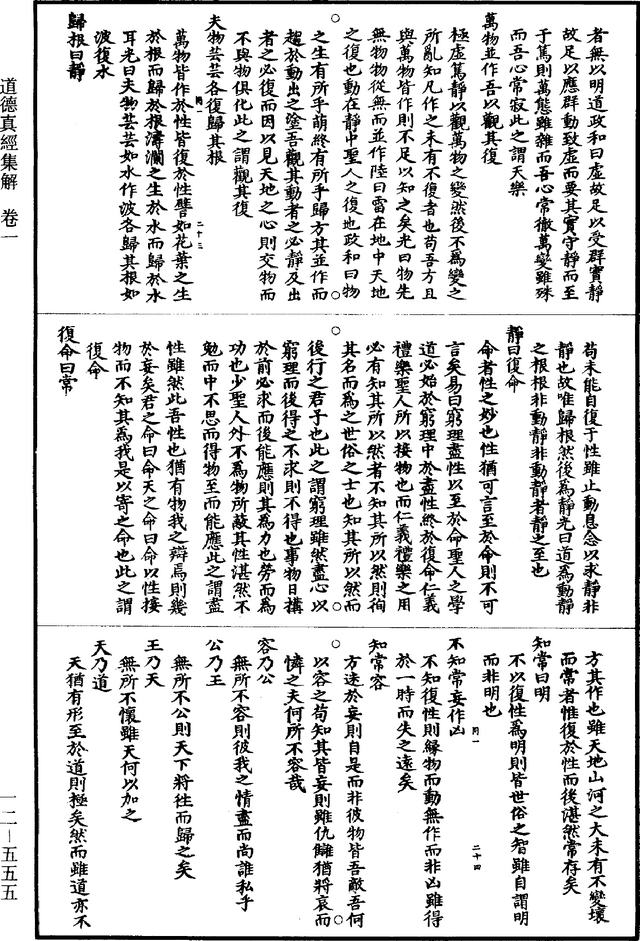 者無以明道政和曰虛故足以受群實靜
故足以應群動致虛而要其實守靜而至
于篤則萬態雖雜而吾心常徹萬變雖殊
而吾心常寂此之謂天樂
萬物並作吾以觀其復
極虛篤靜以觀萬物之變然後不爲變之
所亂知凡作之未有不復者也苟吾方且
與萬物皆作則不足以知之矣光曰物先
無物物從無而並作陸曰雷在地中天地
之復也動在靜中聖人之復也政和曰物
之生有所乎萌終有所乎歸方其並作而
趨於動出之塗吾觀其動者之必靜及出
者之必復而因以見天地之心則交物而
不與物俱化此之謂觀其復
夫物芸芸各復歸其根
萬物皆作於性皆復於性譬如花葉之生
於根而歸於根濤瀾之生於水而歸於水
耳光曰夫物芸芸如水作波各歸其根如
波復水
歸根曰靜
苟未能自復于性雖止動息念以求靜非
靜也故唯歸根然後爲靜光曰道爲動靜
之根根非動靜非動靜者靜之至也
靜曰復命
命者性之妙也性猶可言至於命則不可
言矣易曰窮理盡性以至於命聖人之學
道必始於窮理中於盡性終於復命仁義
禮樂聖人所以接物也而仁義禮樂之用
必有知其所以然者不知其所以然則徇
其名而爲之世俗之士也知其所以然而
後行之君子也此之謂窮理雖然盡心以
窮理而後得之不求則不得也事物日構
於前必求而後能應則其爲力也勞而爲
功也少聖人外不爲物所蔽其性湛然不
勉而中不思而得物至而能應此之謂盡
性雖然此吾性也猶有物我之辯焉則幾
於妄矣君之命曰命天之命曰命以性接
物而不知其爲我是以寄之命也此之謂
復命
復命曰常
方其作也雖天地山河之大未有不變壞
而常者惟復於性而後湛然常存矣
知常曰明
不以復性爲明則皆世俗之智雖自謂明
而非明也
不知常妄作凶
不知復性則緣物而動無作而非凶雖得
於一時而失之遠矣
知常容
方迷於妄則自是而非彼物皆吾敵吾何
以容之苟知其皆妄則雖仇讎猶將哀而
憐之夫何所不容哉
容乃公
無所不容則彼我之情盡而尚誰私乎
公乃王
無所不公則天下將往而歸之矣
王乃天
無所不懷雖天何以加之
天乃道
天猶有形至於道則極矣然而雖道亦不
二十三
二十四
道德真經集解 卷一
一二—五五五